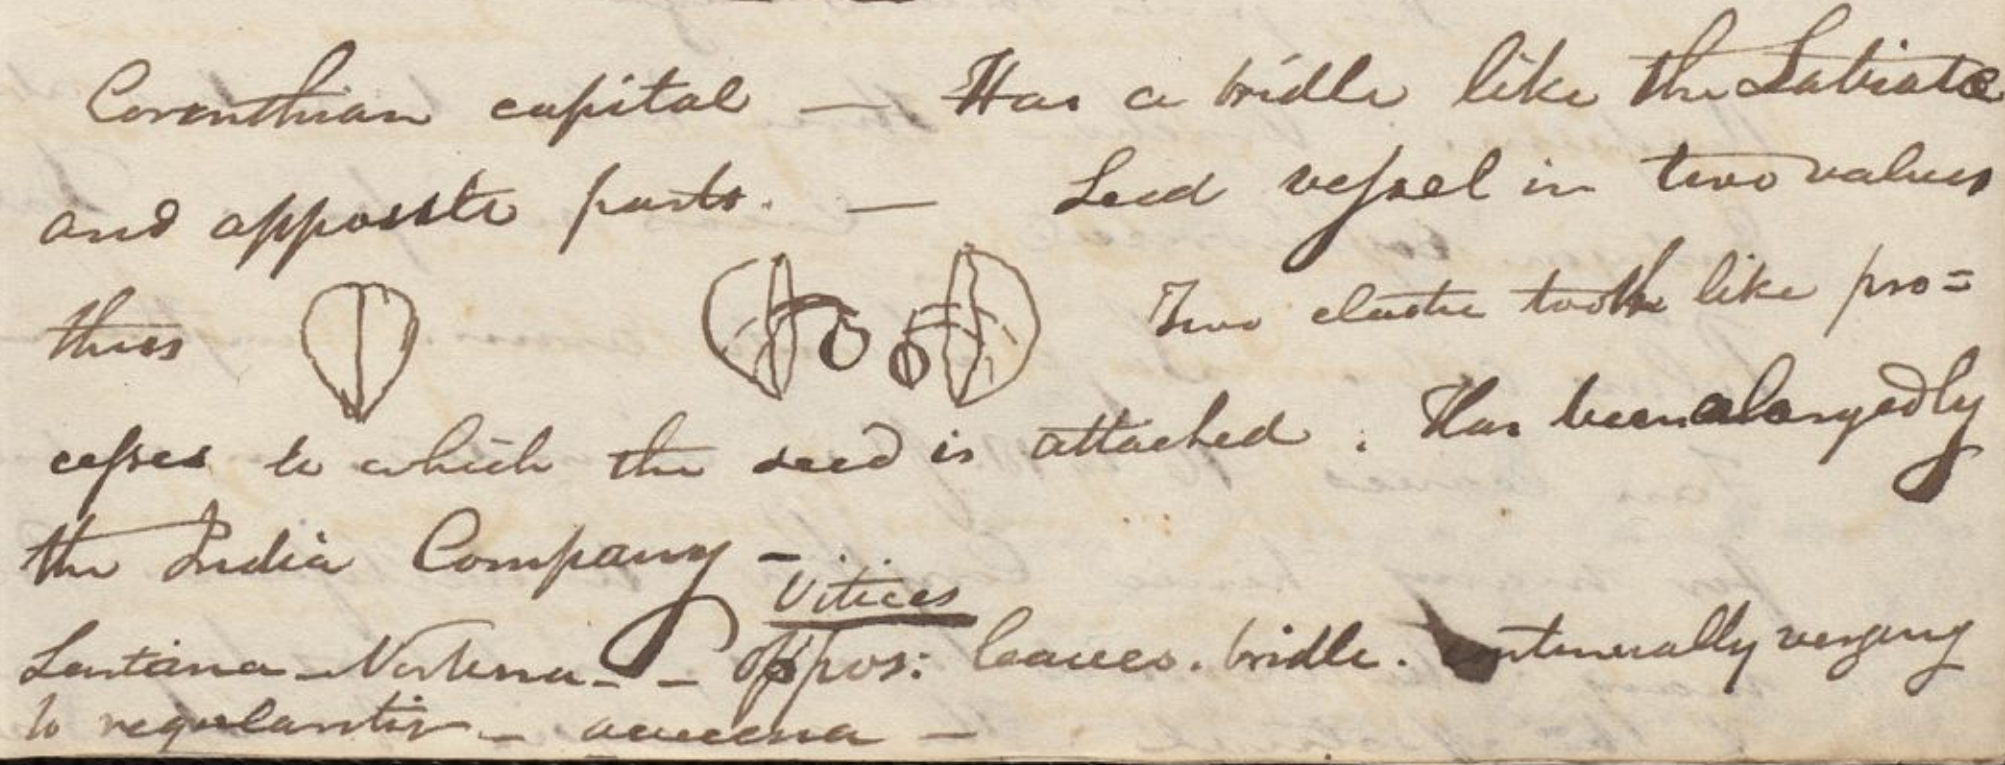 Corinthian capital — Has a bridle like the Labiatæ
and opposite parts. — Seed vessel in two valves
thus Two elastic tooth like pro=
cesses to which the seed is attached. Has been alargedly
the India Company —
Vitices
Lantana — — oppos: leaves. bridle. verging
to —